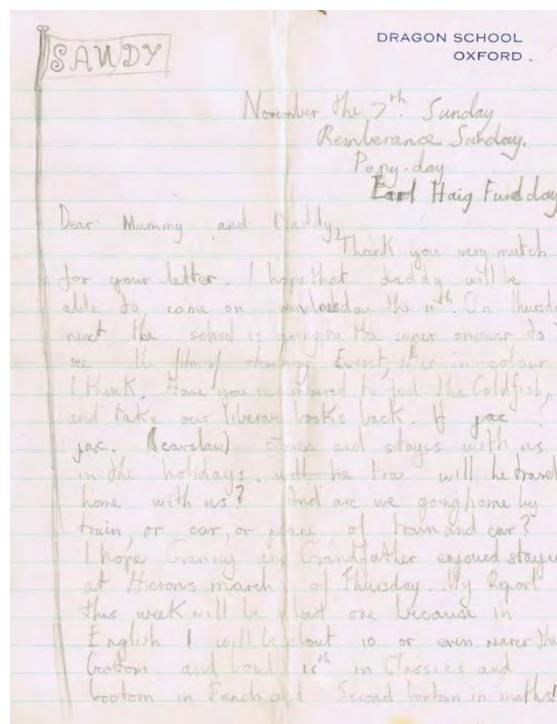 SANDY
DRAGON SCHOOL
OXFORD.
November the 7th Sunday
Remberance Sunday.
Popy-day
Earl Haig Fund day
Dear Mummy and Daddy,
Thank you very mutch
for your letter. I hope that daddy will be
able to come on the 11th. On thursd
next the school is going to the super do
see the film of Everist, it is in colour
I think. Have you to feed the Goldfish,
and take our liberary books back. If jac
jac. (Carslaw) comes and stays with us
in the holidays. will he tra will he travel
home with us? And are we going home by
train, or car, or plane of train and car?
I hope Granny and Grandfather enjoued stayin
at Herons march of Thursday. My Report
this week will be a last one because in
English I will be about 10 or even nearer the
bootom and 15th in Classics and
bootom in French and Second bootom in maths!